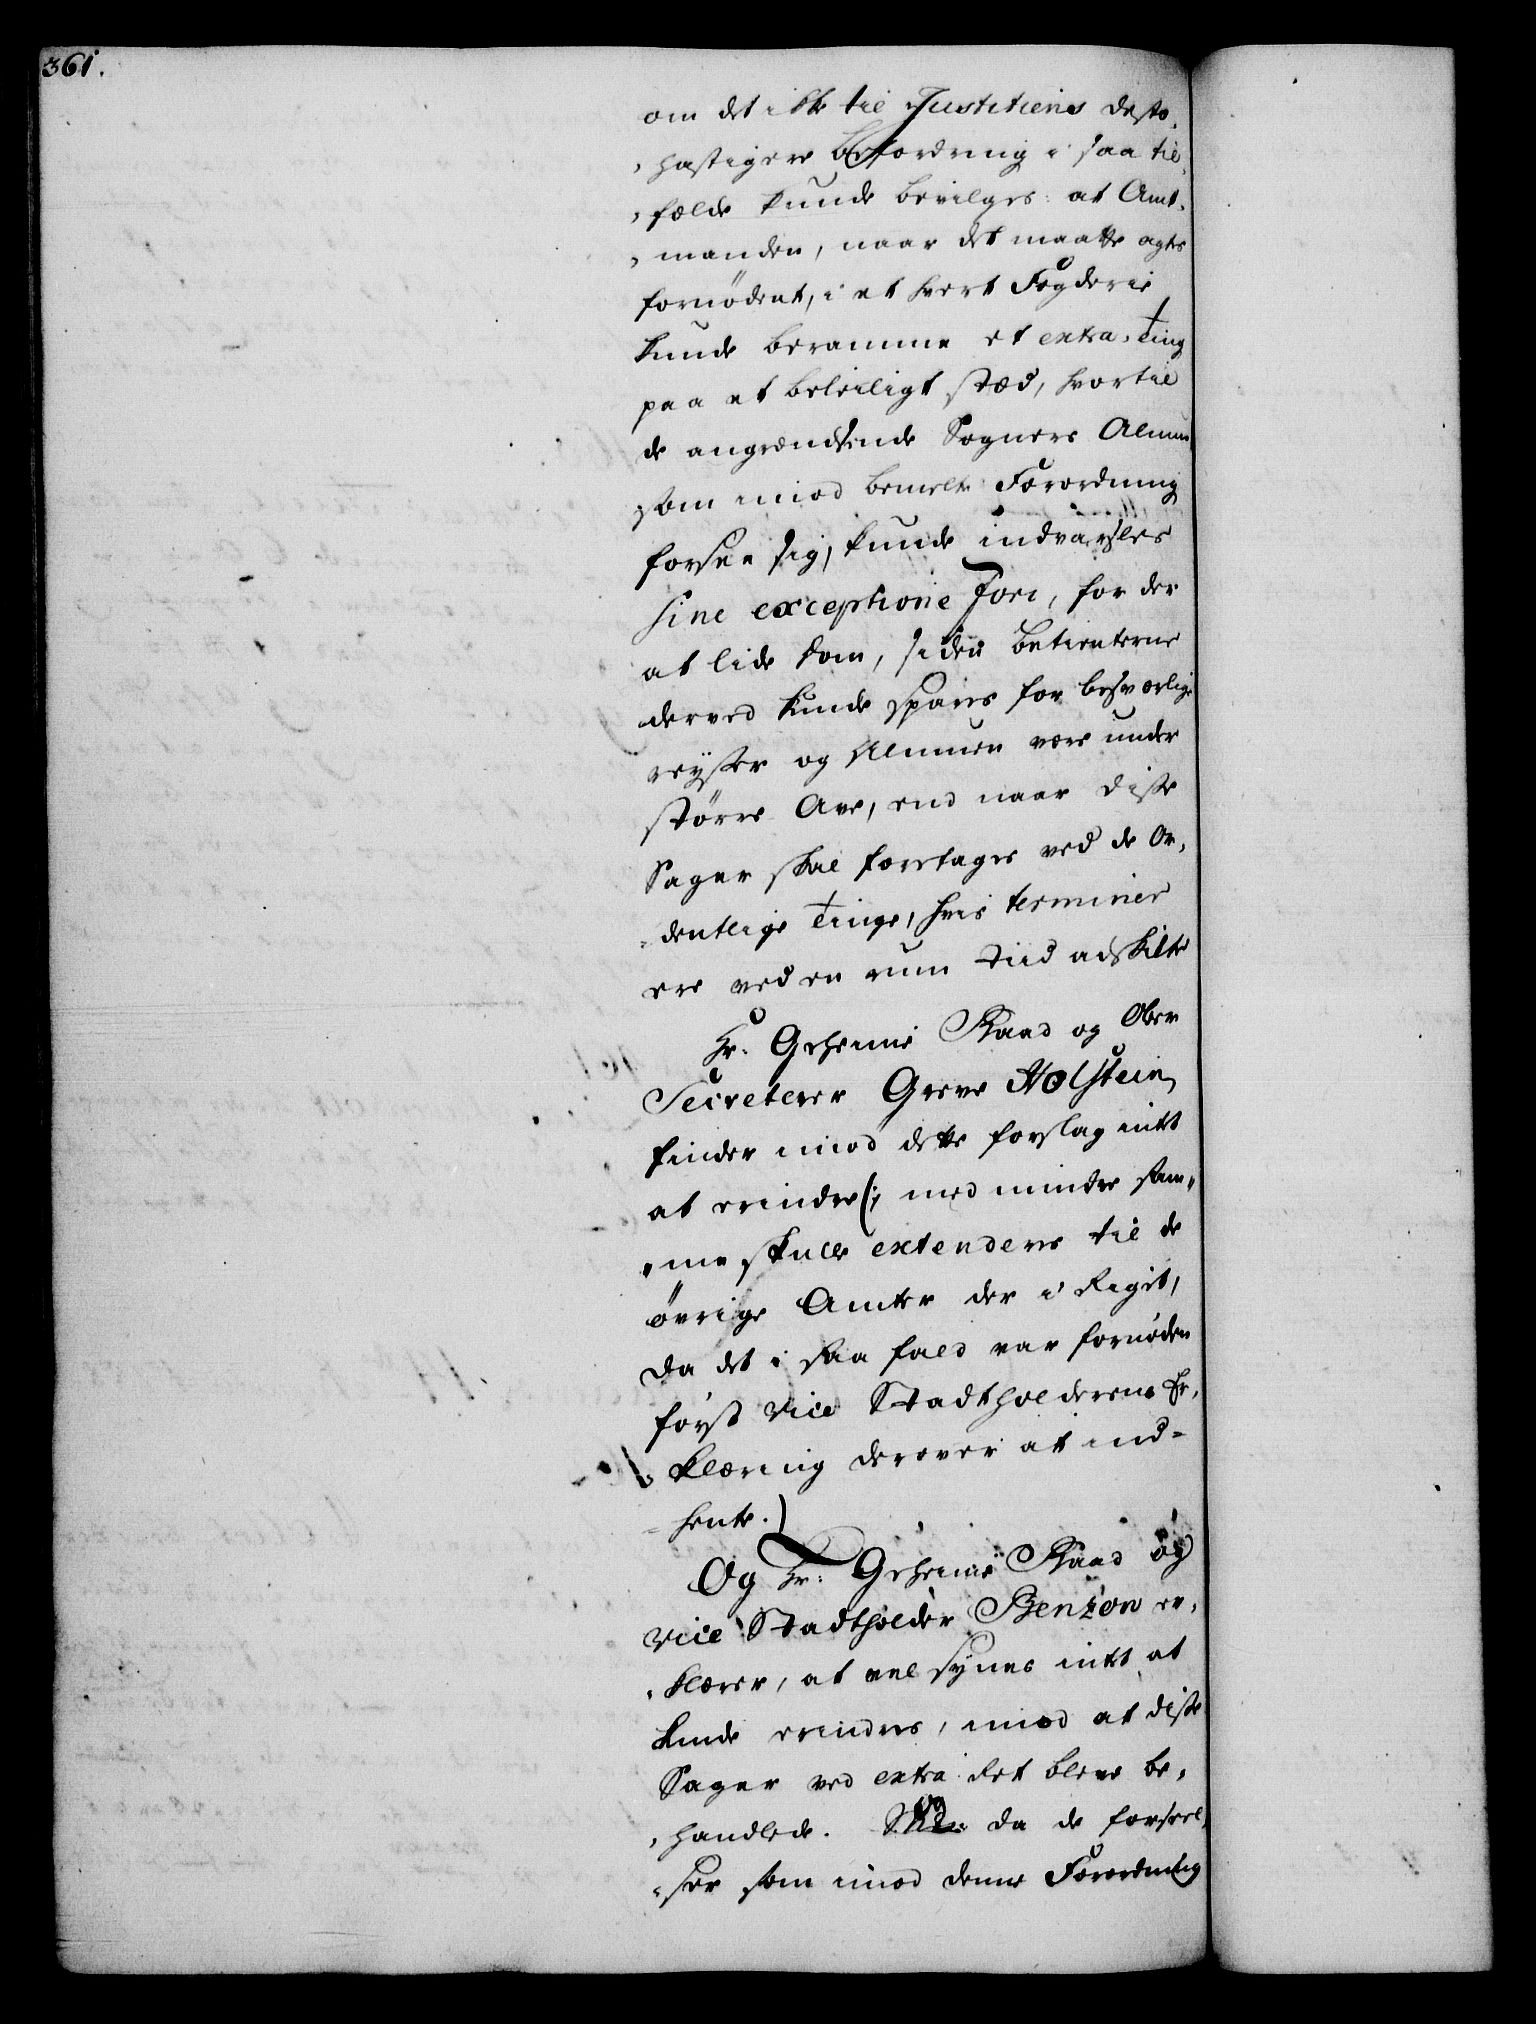 361.
om det ikke til Justitiens desto,
,hastigere Befordring i saa til,
,fælde kunde bevilges: at Amt,
,manden, naar det maatte agtes
fornødent, i et hvert Fogderie
kunde beramme et extra-Ting
paa et beleiligt stæd, hvortil
de angrændsende Sogners Almue
som imod bemelte Forordning
forsee sig, kunde indvarsles
sine exceptione Fori, for der
at lide Dom, siden betienterne
derved kunde spares for besværlige
reyser og Almuen være under
større Ave, end naar disse
Sager skal foretages ved de Or,
-dentlige Tinge, hvis terminer
ere ved en rum Tiid adskilte
Hr. Geheime Raad og Ober
Secreterer Greve Holstein
finder imod dette forslag intet
at erindre (: med mindre sam,,
,,me skulle extenderes til de
øvrige Amter der i Riget,
da det i saa fald var fornøden
først Vice Stadtholderens Er,
,klæring derover at ind-
-hente.)
Og Hr. Geheime Raad og
Vice Stadtholder Benzon er,
,klærer, at vel synes intet at
kunde erindres, imod at disse
Sager ved extra Ret bleve be,
,handlede. og da de forseel,
,ser som imod denne Forordning